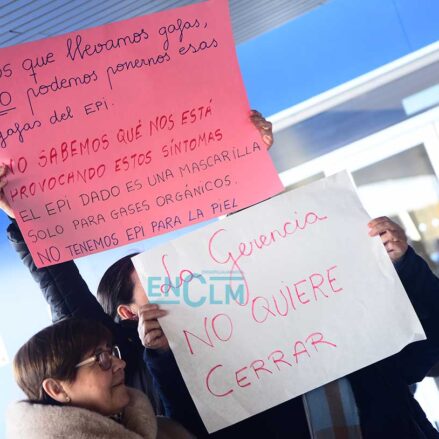 OS QUE LLEVAMOS GAFAS,
NO PODEMOS PONERNOS ESAS
GAFAS DEL EPI.
NO SABEMOS QUÉ NOS ESTÁ
PROVOCANDO ESTOS SÍNTOMAS
EL EPI DADO ES UNA MASCARILLA
SOLO PARA GASES ORGÁNICOS.
NO TENEMOS EPI PARA LA PIEL
La Gerencia
NO QUIERE
CERRAR
ENCLM